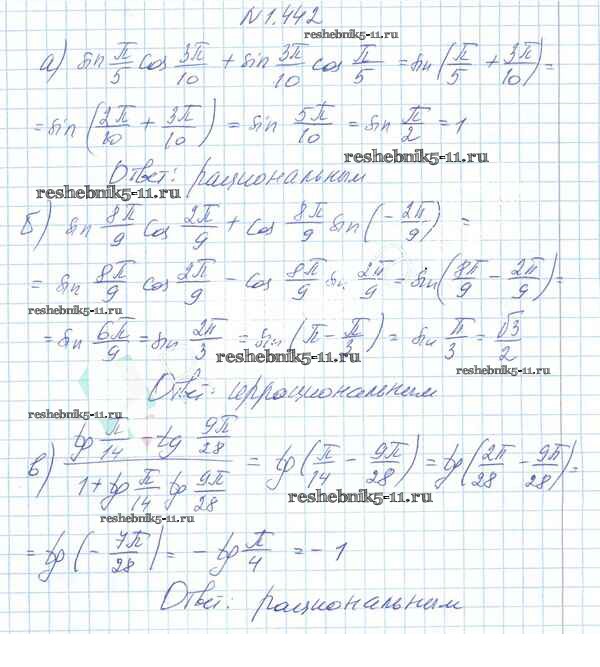 N 1.442
reshebnik5-11.ru
а) sin π/5 cos 3π/10 + sin 3π/10 cos π/5 = sin (π/5 + 3π/10) =
= sin (2π/10 + 3π/10) = sin 5π/10 = sin π/2 = 1
reshebnik5-11.ru
Ответ: рациональным
reshebnik5-11.ru
б) sin 8π/9 cos 2π/9 + cos 8π/9 sin (- 2π/9) =
= sin 8π/9 cos 2π/9 - cos 8π/9 sin 2π/9 = sin (8π/9 - 2π/9) =
reshebnik5-11.ru
= sin 6π/9 = sin 2π/3 = sin (π - π/3) = sin π/3 = √3/2
reshebnik5-11.ru
Ответ: иррациональным
reshebnik5-11.ru
в) (tg π/14 - tg 9π/28)/(1 + tg π/14 tg 9π/28) = tg (π/14 - 9π/28) = tg (2π/28 - 9π/28) =
reshebnik5-11.ru
reshebnik5-11.ru
= tg (- 7π/28) = - tg π/4 = - 1
Ответ: рациональным